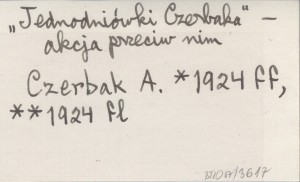 „Jednodniówki Czerbaka" –
akcja przeciw nim
Czerbak A. *1924 ff,
**1924 fl